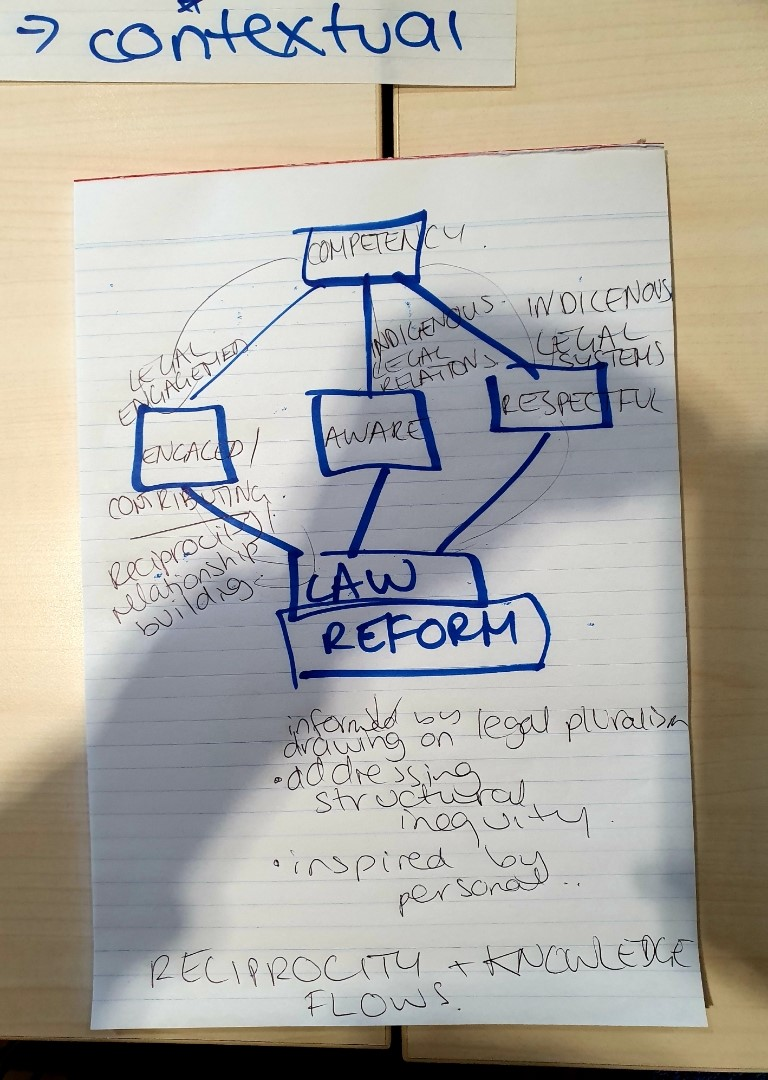 ⇒ contextual
COMPETENCY.
LEGAL
ENGAGEMED
INDIGENOUS
LEGAL
RELATIONS
INDIGENOUS
LEGAL
SYSTEMS
ENGAGED/
CONTRIBUTING.
AWARE
RESPECTFUL
Reciprocity/
relationship
building
LAW
REFORM
informed by legal pluralism
drawing on
•addressing
structural
inequity.
•inspired by
personal..
RECIPROCITY + KNOWLEDGE
FLOWS.